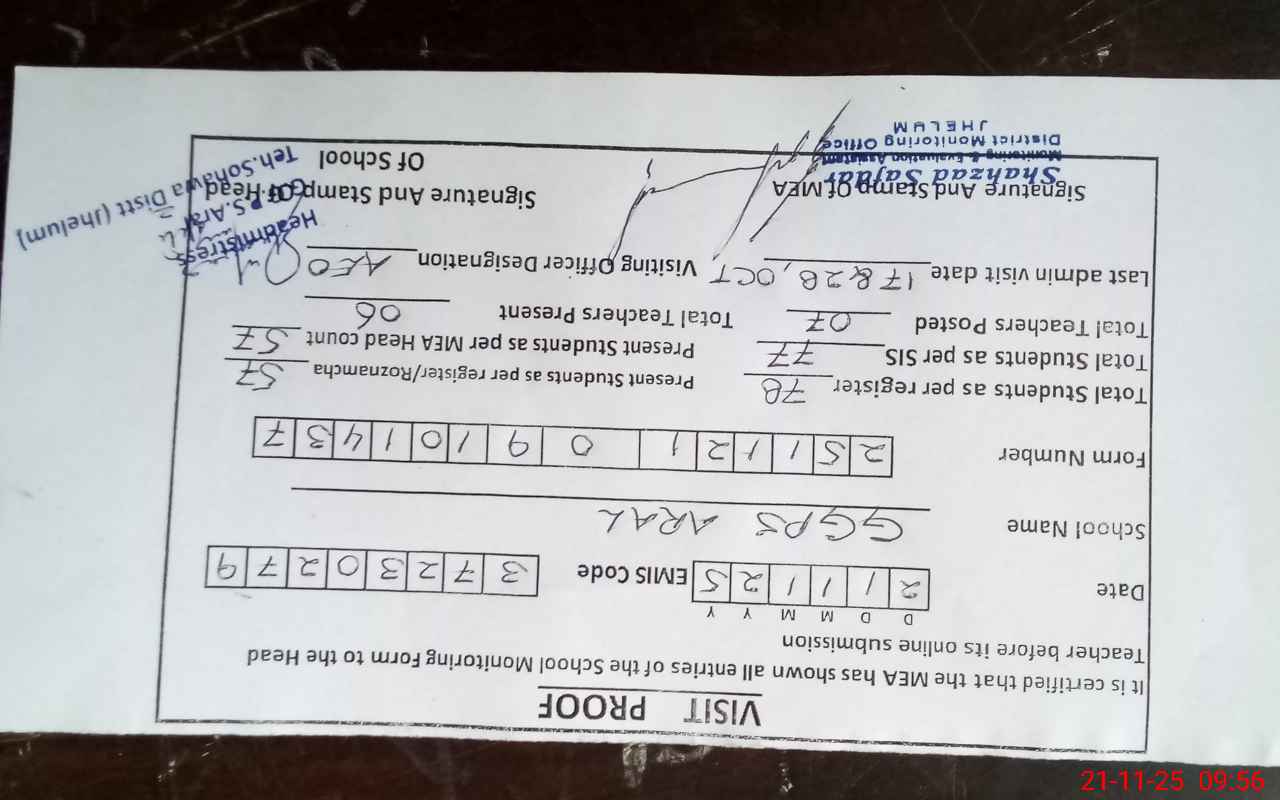 VISIT PROOF
It is certified that the MEA has shown all entries of the School Monitoring Form to the Head
Teacher before its online submission
D D M M Y Y
Date 2 1 1 1 2 5 EMIS Code 3 7 2 3 0 2 7 9
School Name GGPS ARAL
Form Number 2 5 1 1 2 1 0 9 1 0 1 4 3 7
Total Students as per register 78 Present Students as per register/Roznamcha 57
Total Students as per SIS 77 Present Students as per MEA Head count 57
Total Teachers Posted 07 Total Teachers Present 06
Last admin visit date 17 & 28, OCT Visiting Officer Designation AEO
Signature And Stamp Of MEA Signature And Stamp Of Head
Of School
Shahzad Sajdar
Monitoring & Evaluation Assistant
District Monitoring Office
JHELUM
Headmistress
G.P.S. Aral
Teh. Sohawa Distt (Jhelum)
21-11-25 09:56